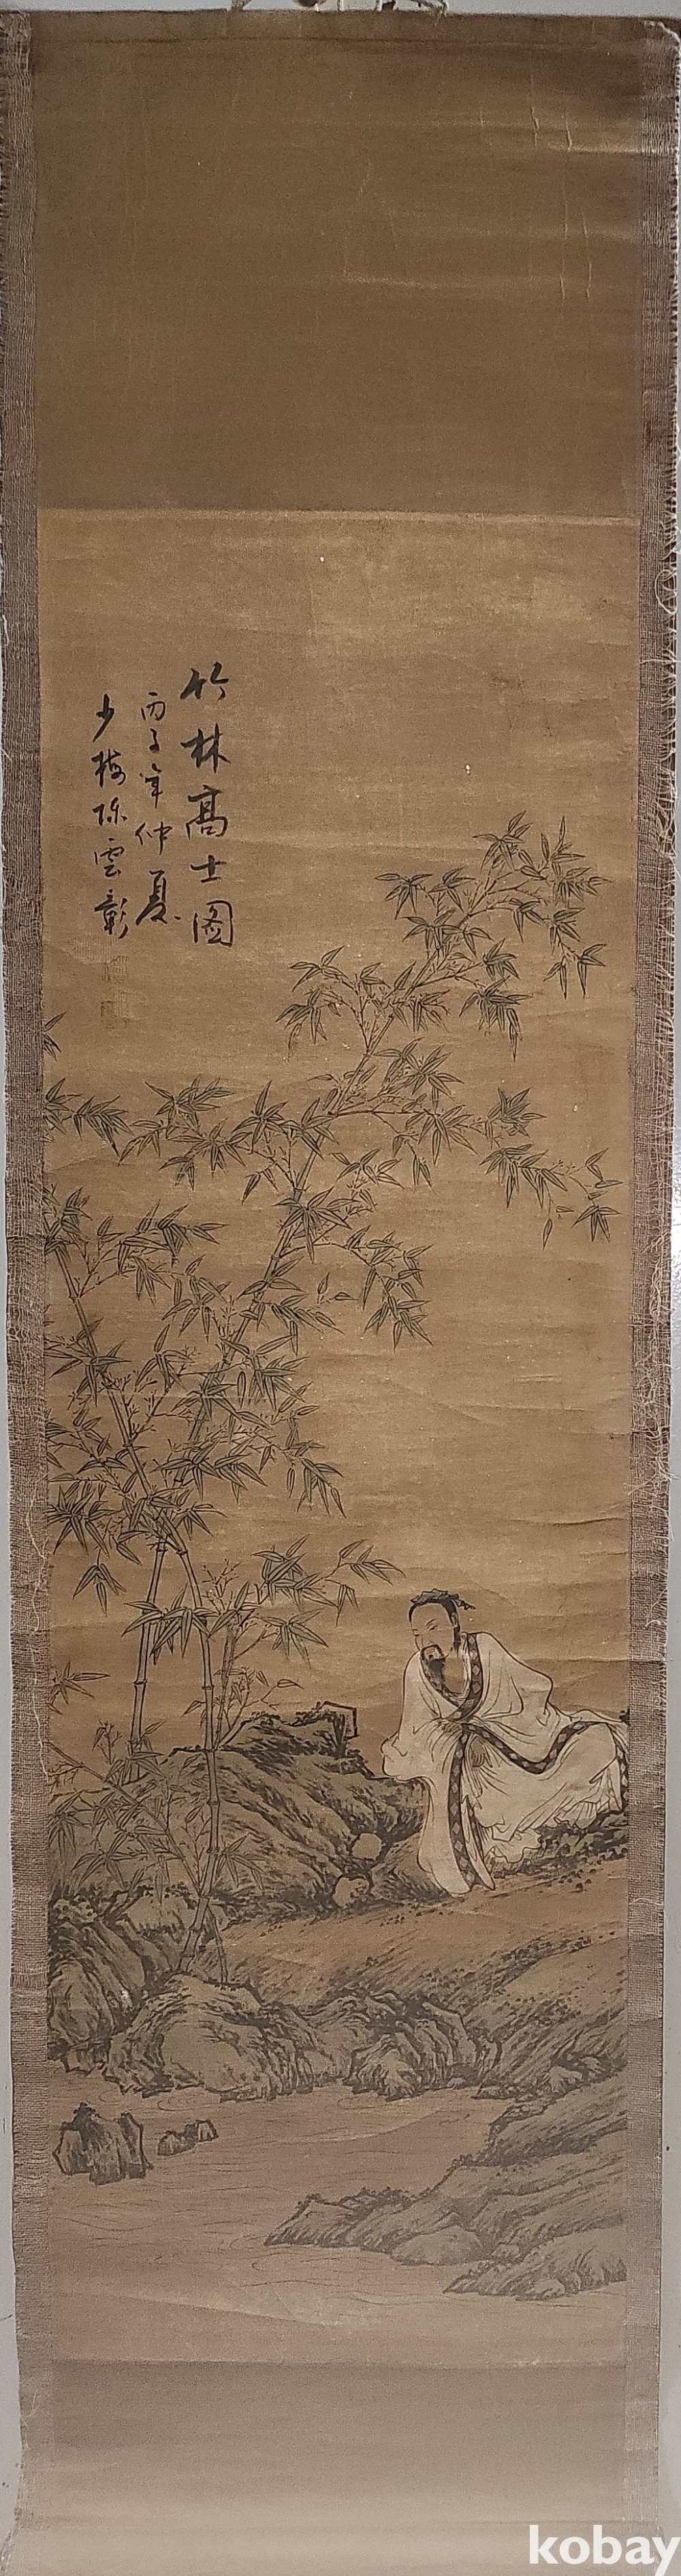 竹林高士图
丙子年仲夏
少梅陈雲彰
kobay